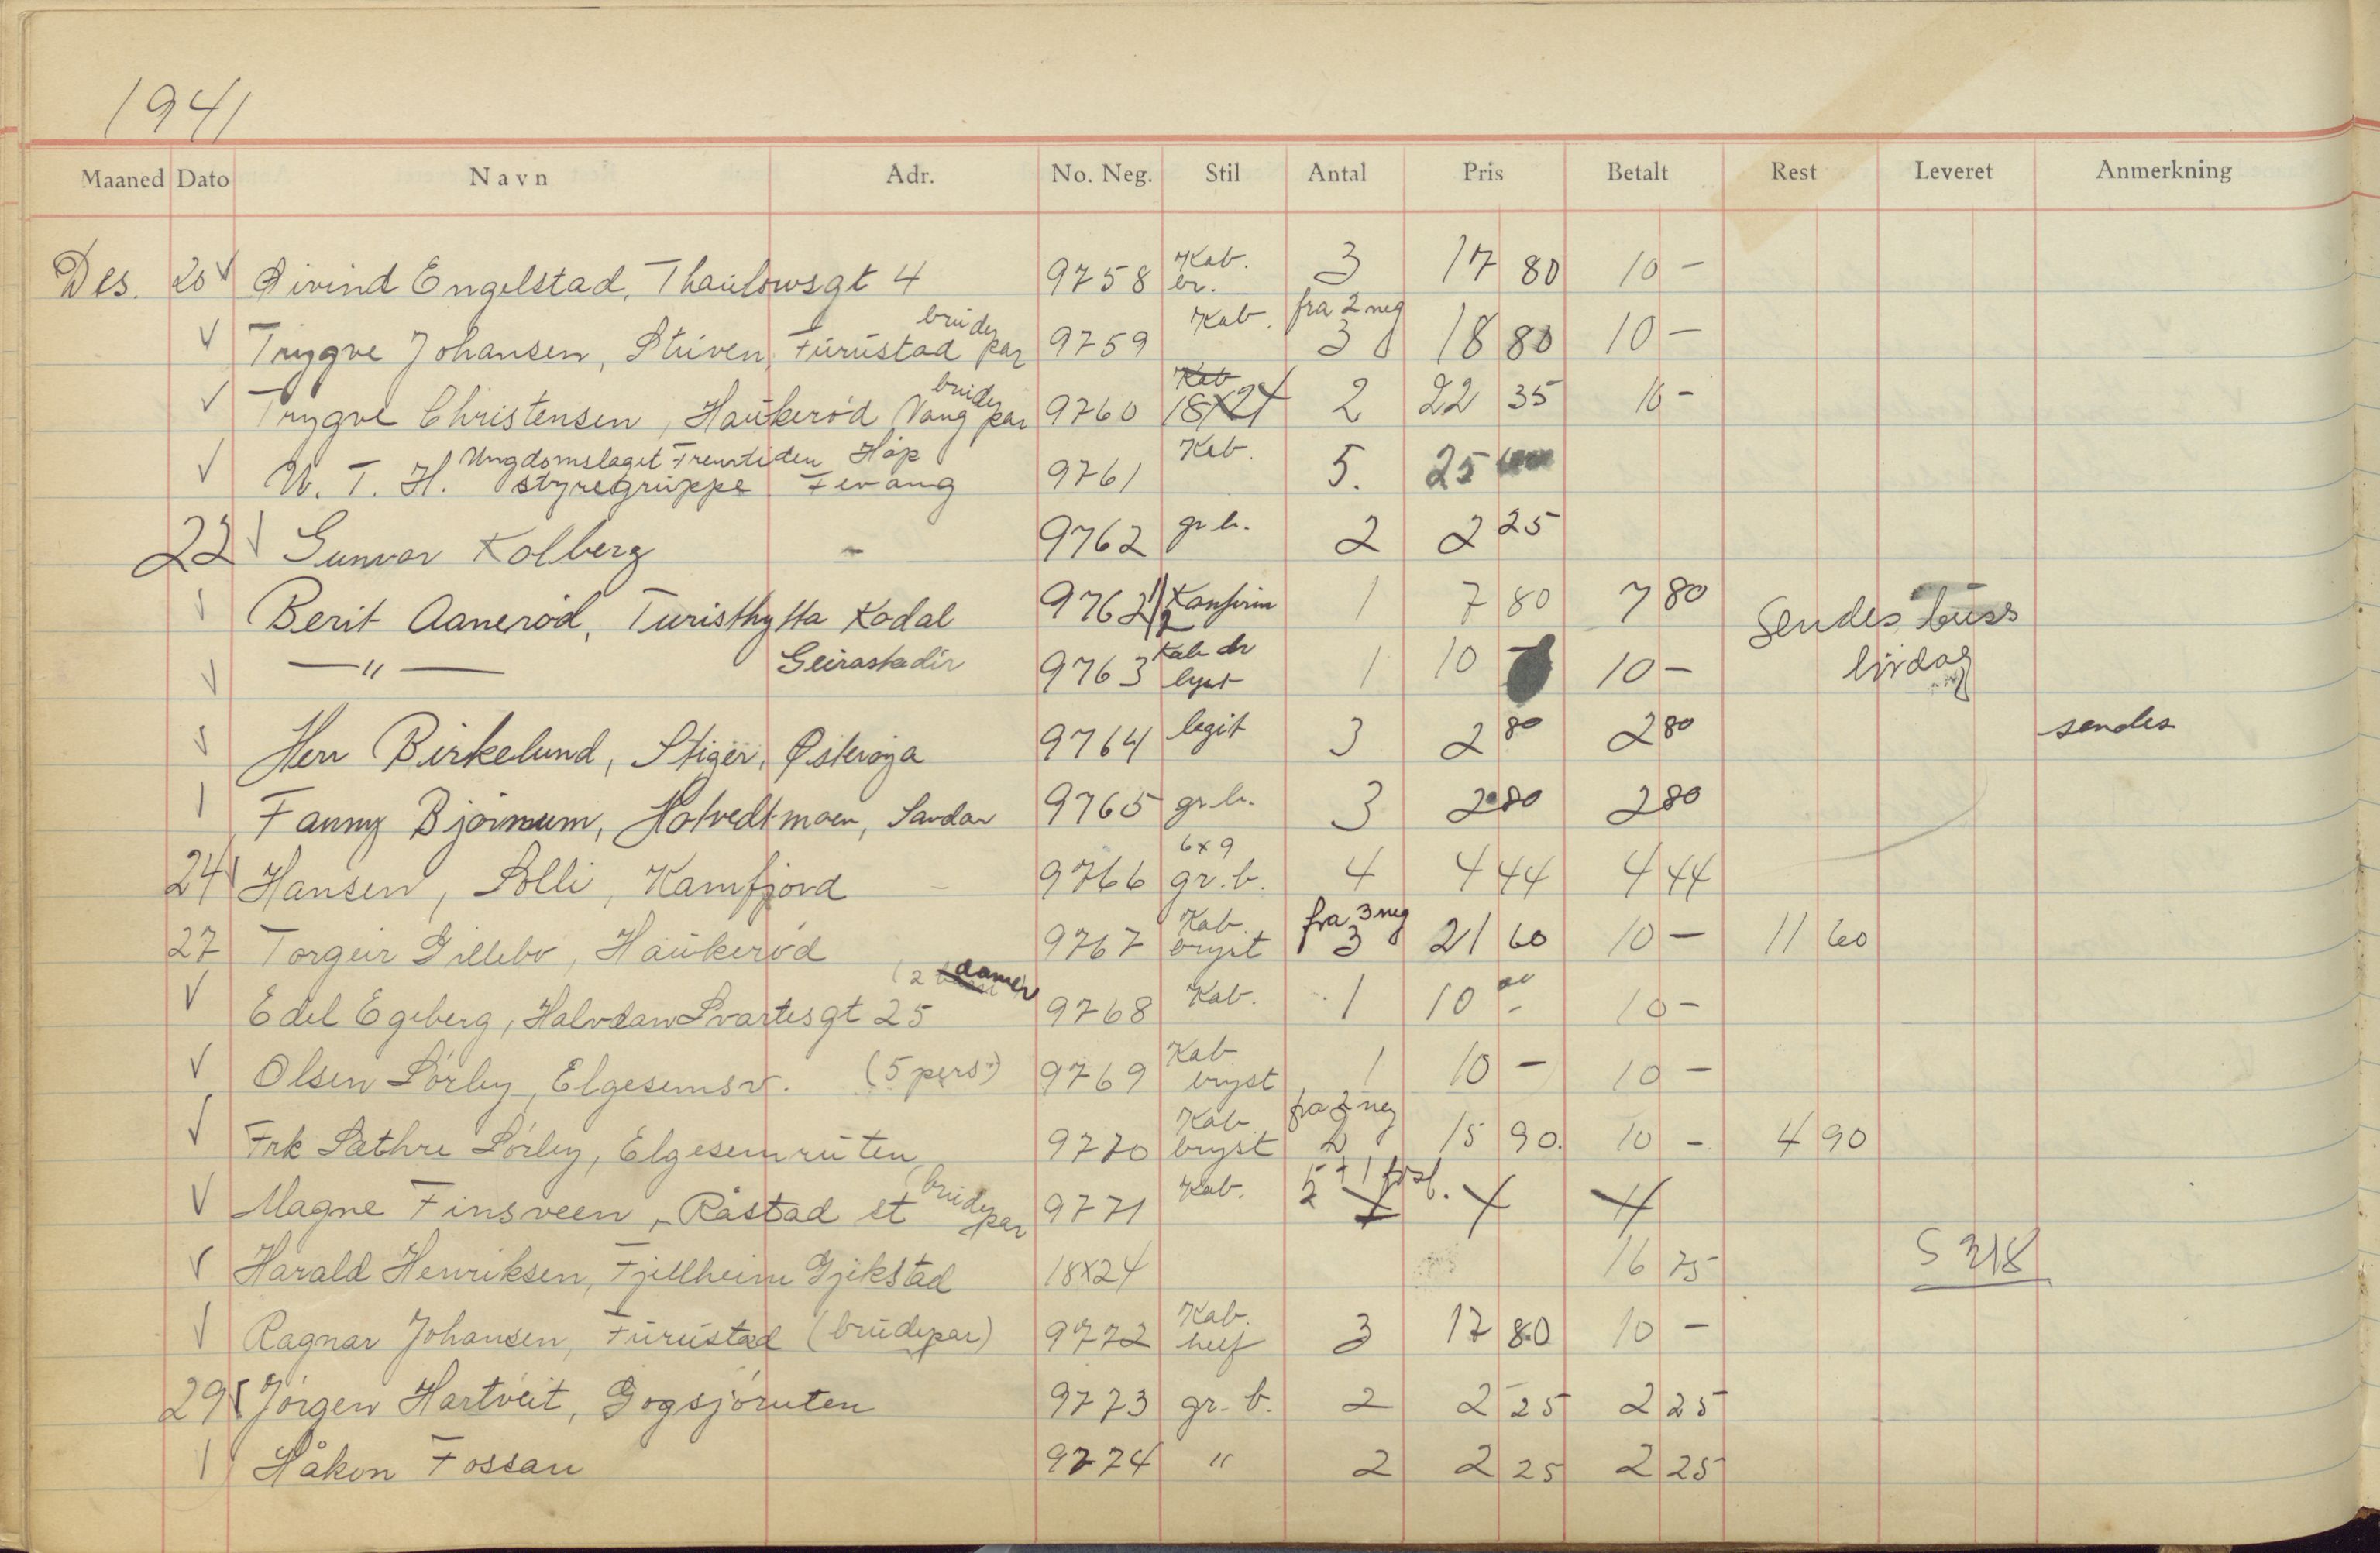 1941
Maaned Dato Navn Adr. No. Neg. Stil Antal Pris Betalt Rest Leveret Anmerkning
Des. 20 √ Øivind Engelstad, Thaulowsgt 4 9758 Kab. br. 3 17 80 10 -
√ Trygve Johansen, Stuven, Furustad brudepar 9759 Kab. fra 2 neg 3 18 80 10 -
√ Trygve Christensen, Haukerød Vang brudepar 9760 Kab 18x24 2 22 35 10 -
√ U. T. H. Ungdomslaget Fremtiden Håp styregruppe Fevang 9761 Kab. 5. 25
22 √ Gunvor Kolberg - 9762 gr b. 2 2 25
√ Berit Aanerød, Turisthytta Kodal 9762 1/2 Konfirm 1 7 80 7 80 Sendes buss
√ —"— Geirastadir 9763 Kab br lyst 1 10 - 10 - lørdag
√ Herr Birkelund, Stiger, Østerøya 9764 legit 3 2 80 2 80 sendes
√ Fanny Bjørnum, Hotvedtmoen, Sandar 9765 gr. b. 3 2 80 2 80
24 √ Hansen, Solli, Kamfjord - 9766 6x9 gr. b. 4 4 44 4 44
27 Torgeir Gillebo, Haukerød 9767 Kab. bryst fra 3 neg 3 21 60 10 - 11 60
√ Edel Egeberg, Halvdan Svartesgt 25 (2 damer 9768 Kab. 1 10 - 10 -
√ Olsen Sørby, Elgesemsv. (5 pers.) 9769 Kab bryst 1 10 - 10 -
√ Frk Sæthre Sørby, Elgesemruten 9770 Kab bryst fra 2 neg 2 15 90. 10 - 4 90
√ Magne Finsveen, Råstad st brudepar 9771 Kab. 5 + 1
√ Harald Henriksen, Fjellheim Gjekstad 18x24 16 75 S 318
√ Ragnar Johansen, Furustad (brudepar) 9772 Kab. helf 3 17 80 10 -
29 √ Jørgen Hartveit, Gogsjøruten 9773 gr. b. 2 2 25 2 25
√ Håkon Fossan 9774 " 2 2 25 2 25